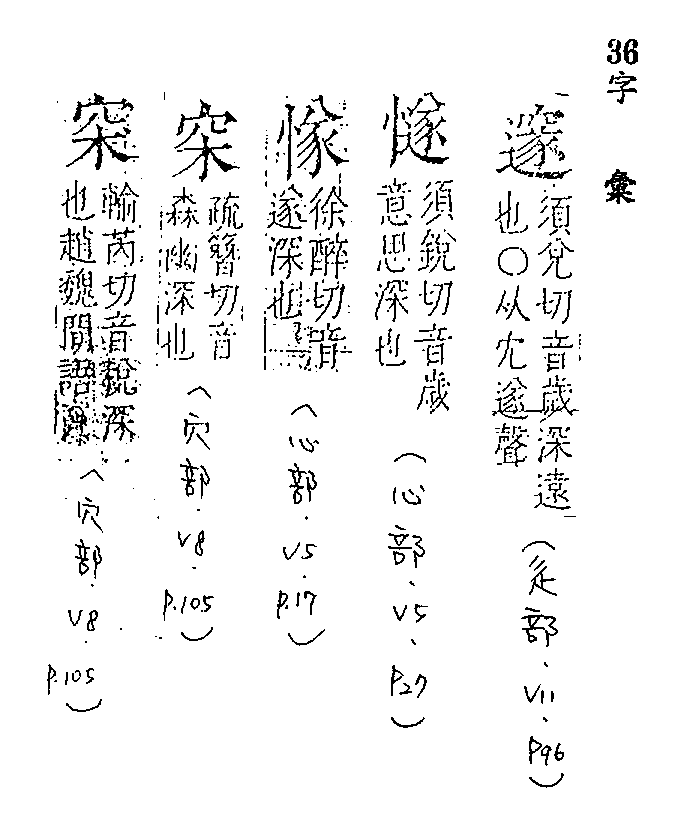 36字彙
邃
須兌切音歲深遠
也〇从穴遂聲
(辵部·V11·P96)
須銳切音歲
意思深也
(心部·V5·P27)
徐醉切音
遂深也
(心部·V5·P.17)
穼
疏簪切音
森幽深也
(穴部·V8·P.105)
輸芮切音稅深
也趙魏間語
(穴部·V8·P.105)